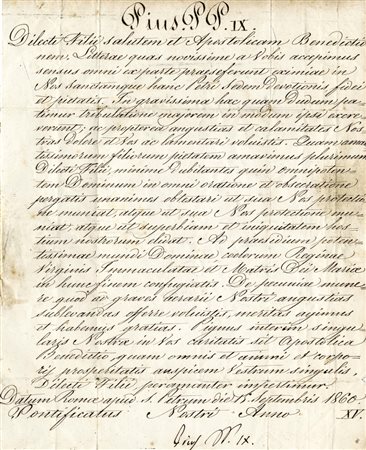 Pius PP. IX.
Dilecti Filii salutem et Apostolicam Benedictio
nem. Litterae quas novissime a Vobis accepimus
sensus omni ex parte praeseferunt eximiae in
Nos Sanctamque hanc Petri Sedem devotionis fidei
et pietatis. In gravissima hac quam dudum pa
timur tribulatione majorem in modum ipsi exce
ac propterea angustias et calamitates Nos
tras dolere et Vos ac lamentari voluistis. Quam aman
tissimorum filiorum pietatem amavimus plurimum
Dilecti Filii, minime dubitantes quin omnipoten
tem Dominum in omni oratione et obsecratione
pergatis unanimes obtestari ut sua Nos protectio
ne muniat, atque ut sua Nos protectione mu
niat atque ut superbiam et iniquitatem hos
tium nostrorum elidat. Ad praesidium poten
tissimae mundi Dominae coelorum Reginae
Virginis Immaculatae et Matris Dei Mariae
in hunc finem confugiatis. De pecuniae mune
re quod ad graves aerarii Nostri angustias
sublevandas offerre voluistis, meritas agimus
et habemus gratias. Pignus interim singu
laris Nostrae in Vos caritatis sit Apostolica
Benedictio, quam omnis et animi et corpo
ris prosperitatis auspicem Vestrum singulis,
Dilecti Filii, peramanter impertimur.
Datum Romae apud S. Petrum die 15 Septembris 1860.
Pontificatus Nostri Anno XV.
Pius PP. IX.